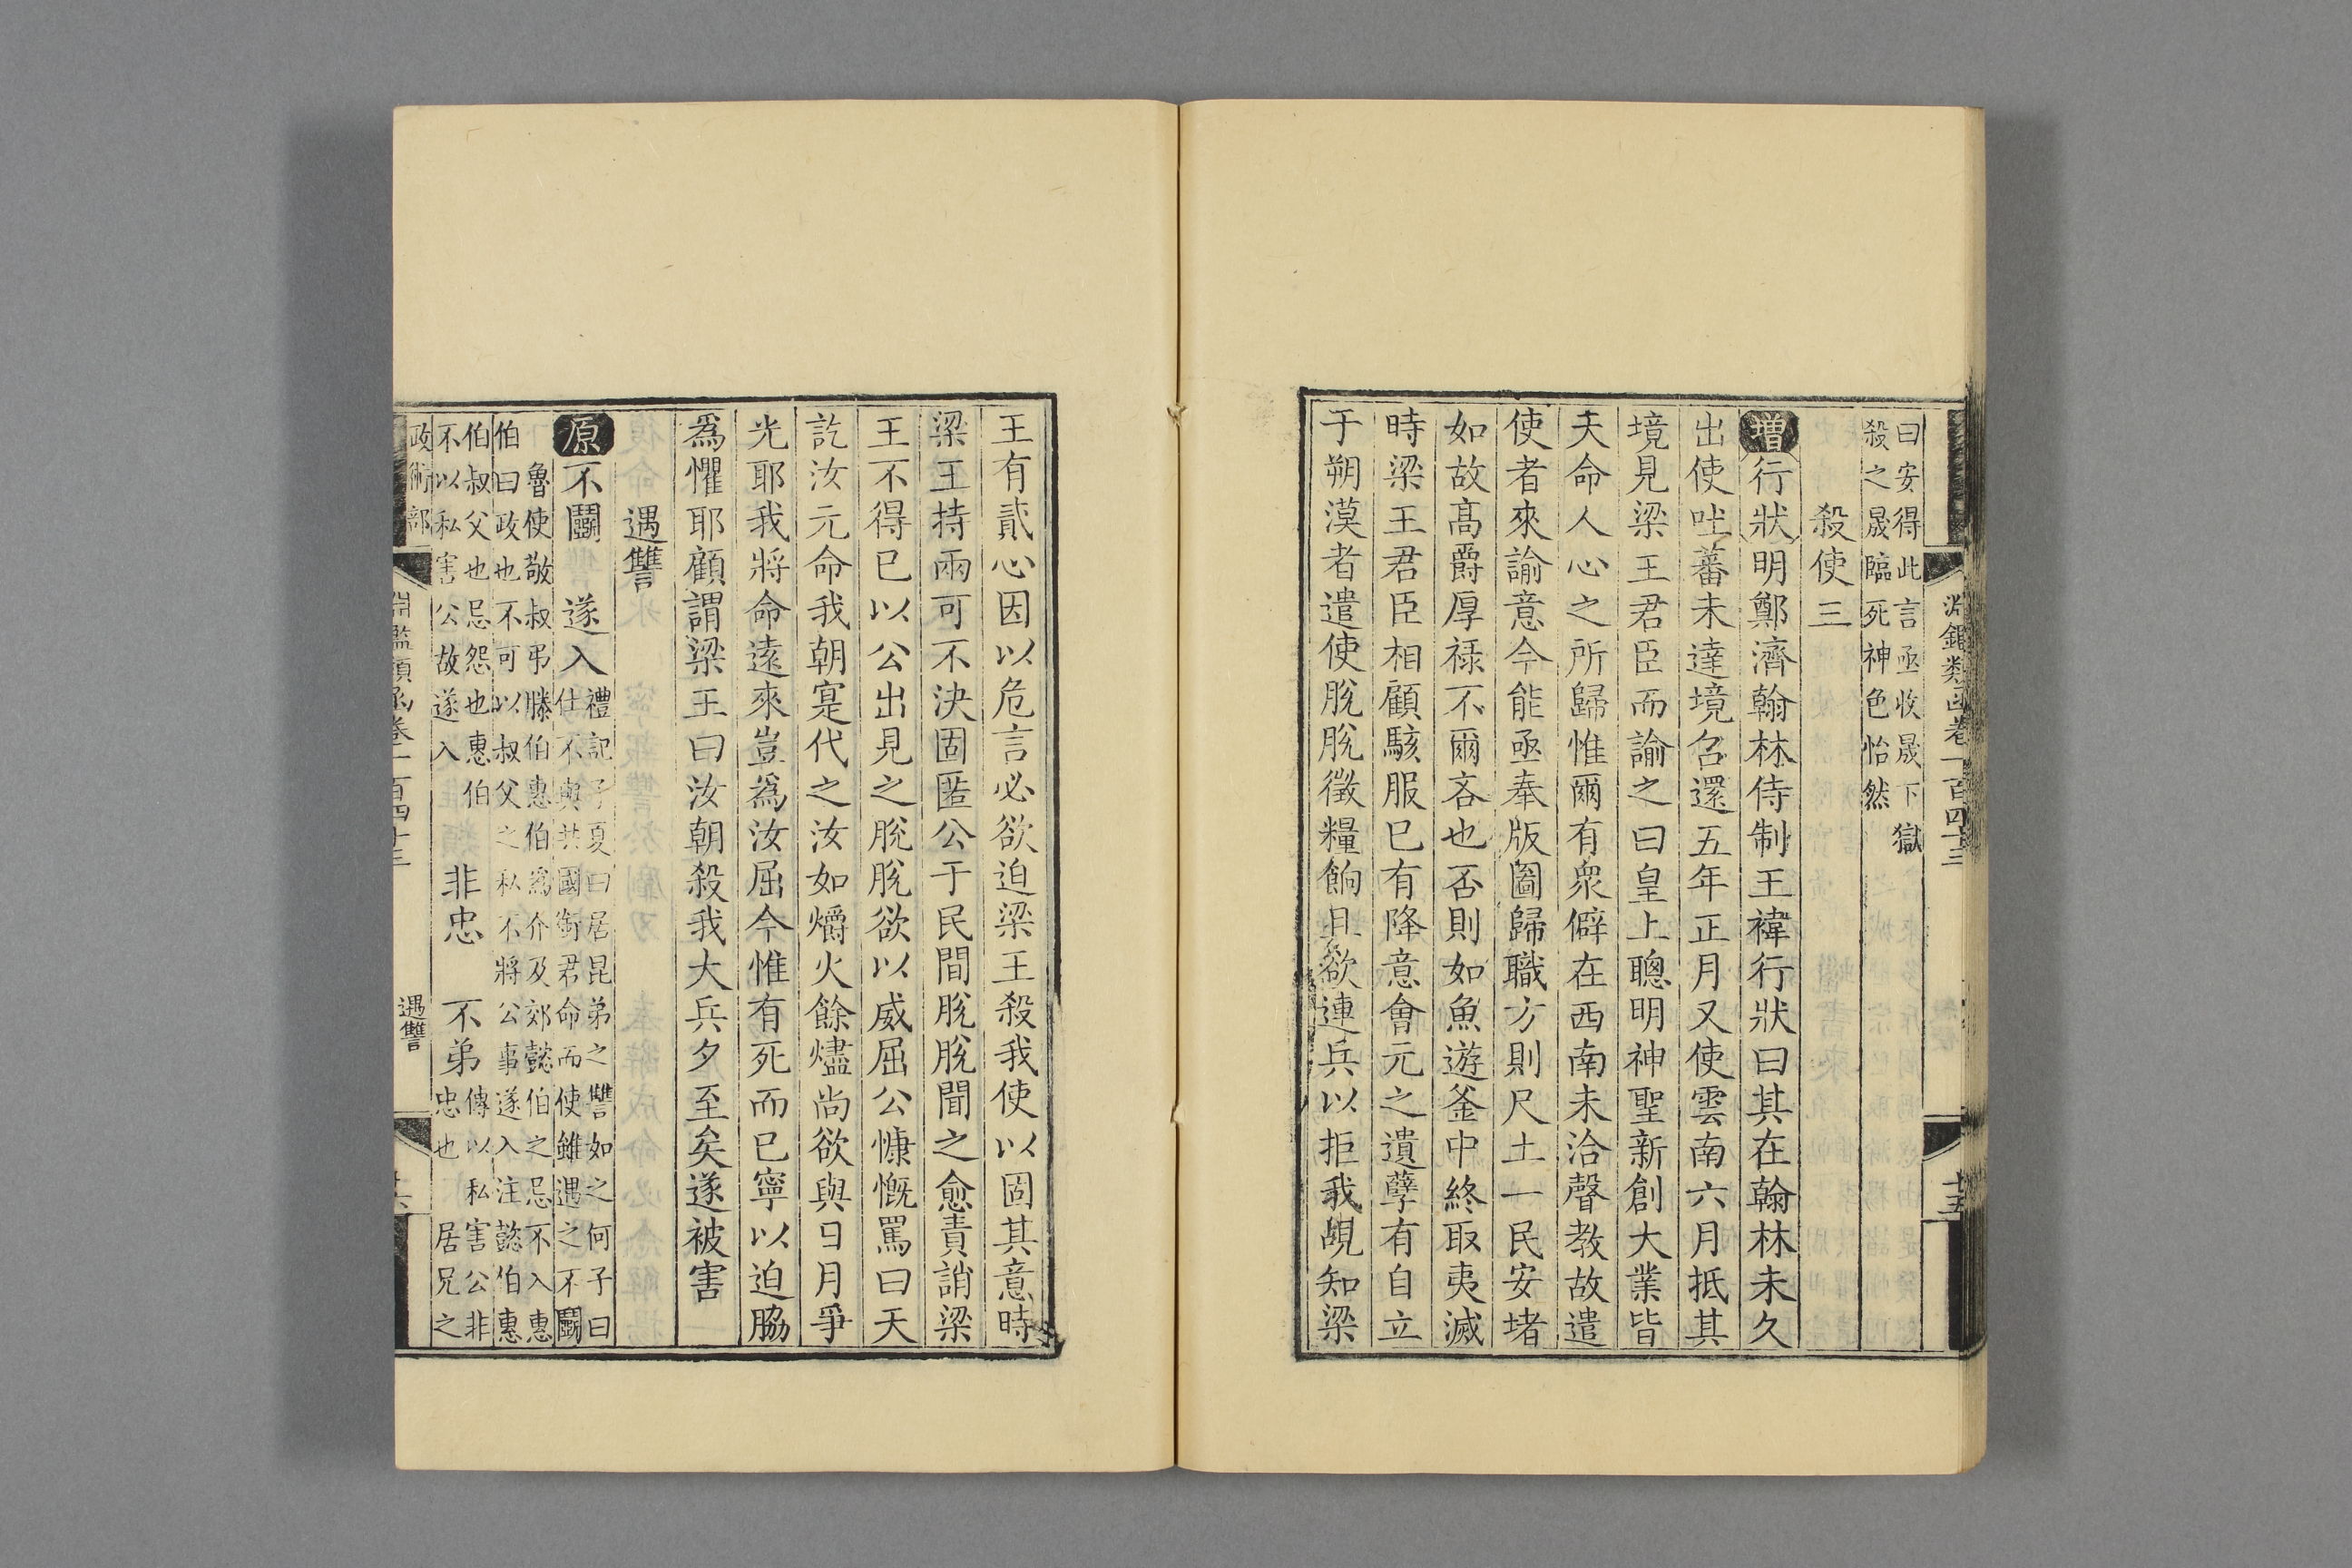 淵鑑類函卷一百四十三
十五
曰安得此言亟收晟下獄
殺之晟臨死神色怡然
殺使三
增行狀明鄭濟翰林侍制王褘行狀曰其在翰林未久
出使吐蕃未達境召還五年正月又使雲南六月抵其
境見梁王君臣而諭之曰皇上聰明神聖新創大業皆
天命人心之所歸惟爾有衆僻在西南未洽聲教故遣
使者來諭意今能亟奉版圖歸職方則尺土一民安堵
如故高爵厚祿不爾吝也否則如魚遊釜中終取夷滅
時梁王君臣相顧駭服已有降意會元之遺孽有自立
于朔漠者遣使脫脫徵糧餉且欲連兵以拒我覘知梁
王有貳心因以危言必欲迫梁王殺我使以固其意時
梁王持兩可不決固匿公于民間脫脫聞之愈責誚梁
王不得已以公出見之脫脫欲以威屈公慷慨罵曰天
訖汝元命我朝寔代之汝如爝火餘燼尚欲與日月爭
光耶我將命遠來豈爲汝屈今惟有死而已寧以迫脇
爲懼耶顧謂梁王曰汝朝殺我大兵夕至矣遂被害
遇讐
原不鬬 遂入禮記子夏曰居昆弟之讐如之何子曰
仕不與共國銜君命而使雖遇之不鬬
魯使敬叔弔滕伯惠伯爲介及郊懿伯之忌不入惠
伯曰政也不可以叔父之私不將公事遂入注懿伯惠
伯叔父也忌怨也惠伯
不以私害公故遂入
非忠 不弟傳以私害公非
忠也 居兄之
政術部
淵鑑類函卷一百四十三
遇讐
十六